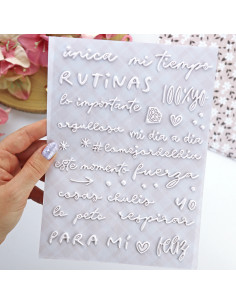 única mi tiempo
RUTINAS 100%yo
lo importante
orgullosa mi día a día
este momento fuerza
cosas chulis yo
lo peto respirar
PARA MÍ feliz